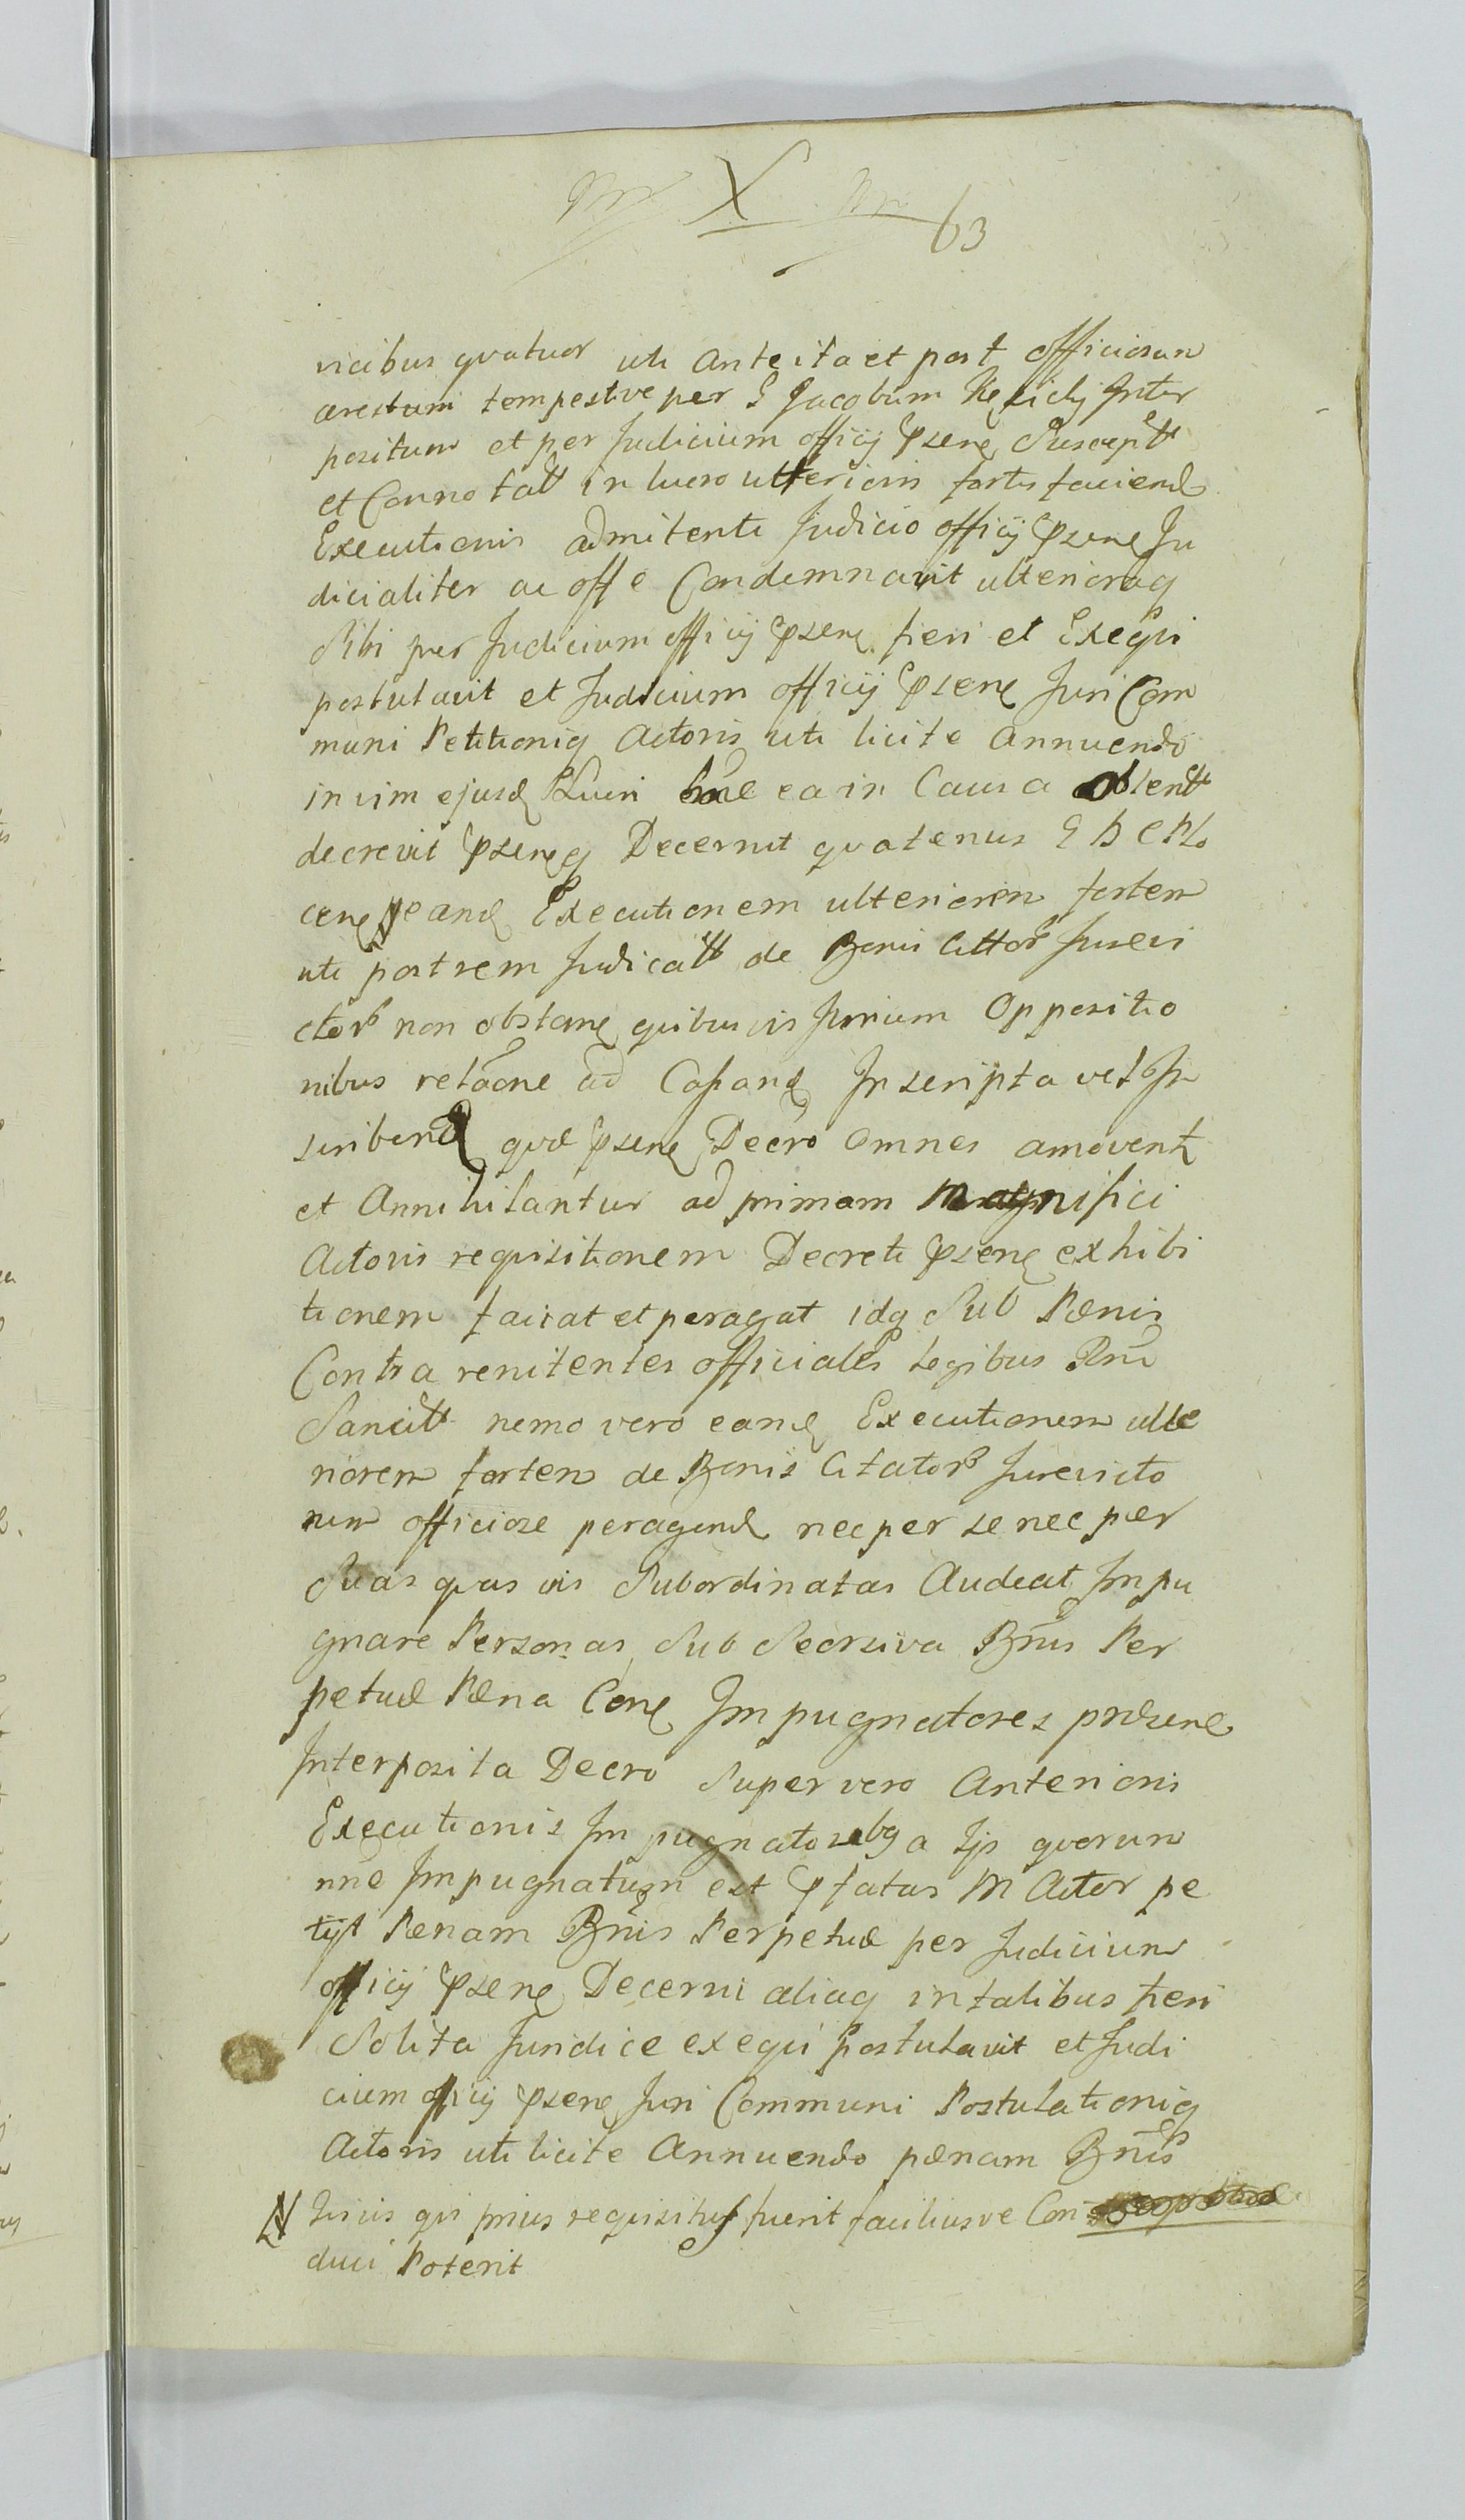 X
63
vicibus quatuor uti antecita et post officiosum
arestum tempestive per G Jacobum Inter
positum et per Judicium officij psene Suscept
et Connotatt in lucro ulterioris fortis faciend
Executionis admitente Judicio officij psene Ju
dicialiter ac offe Condemnavit ulterioraq
Sibi per Judicium officij psene fieri et Exequi
postulavit et Judicium officij psene Juri Com
muni Petitioniq Actoris uti licite annuendo
in vim ejusd Lucri ea in Causa obtentt
decrevit pseneq Decernit quatenus G
cene eand Executionem ulteriorem fortem
uti post rem Judicatt de Bonis Cittor Jurevi
ctor non obstane quibusvis Jurium Oppositio
nibus relãone ad Capand Inscripta vel In
scribend quæ psene Decro omnes amovent
et Annihilantur ad primam Magnifici
Actoris requisitionem Decreti psene exhibi
tionem faciat et peragat idq Sub Pænis
Contra renitentes officiales Legibus Rni
Sancitt nemo vero eand Executionem ulte
riorem fortem de Bonis Citator Jurevicto
rum officiose peragend nec per se nec per
Suas quas vis Subordinatas Audeat Impu
gnare Personas Sub Seorsiva Bnis Per
petuæ Pæna Cone Impugnatores præsene
Interposita Decro Super vero Anterioris
Executionis Impugnatorebq a Ijs quorum
nne Impugnatum est pfatus M Actor pe
tijt Pænam Bnis Perpetuæ per Judicium
officij psene Decerni aliaq in talibus fieri
Solita Juridice exequi postulavit et Judi
cium officij psene Juri Communi Postulationiq
Actoris uti licite Annuendo pænam Bnis
qui prius requisitus fuerit faciliusve Con
duci Poterit